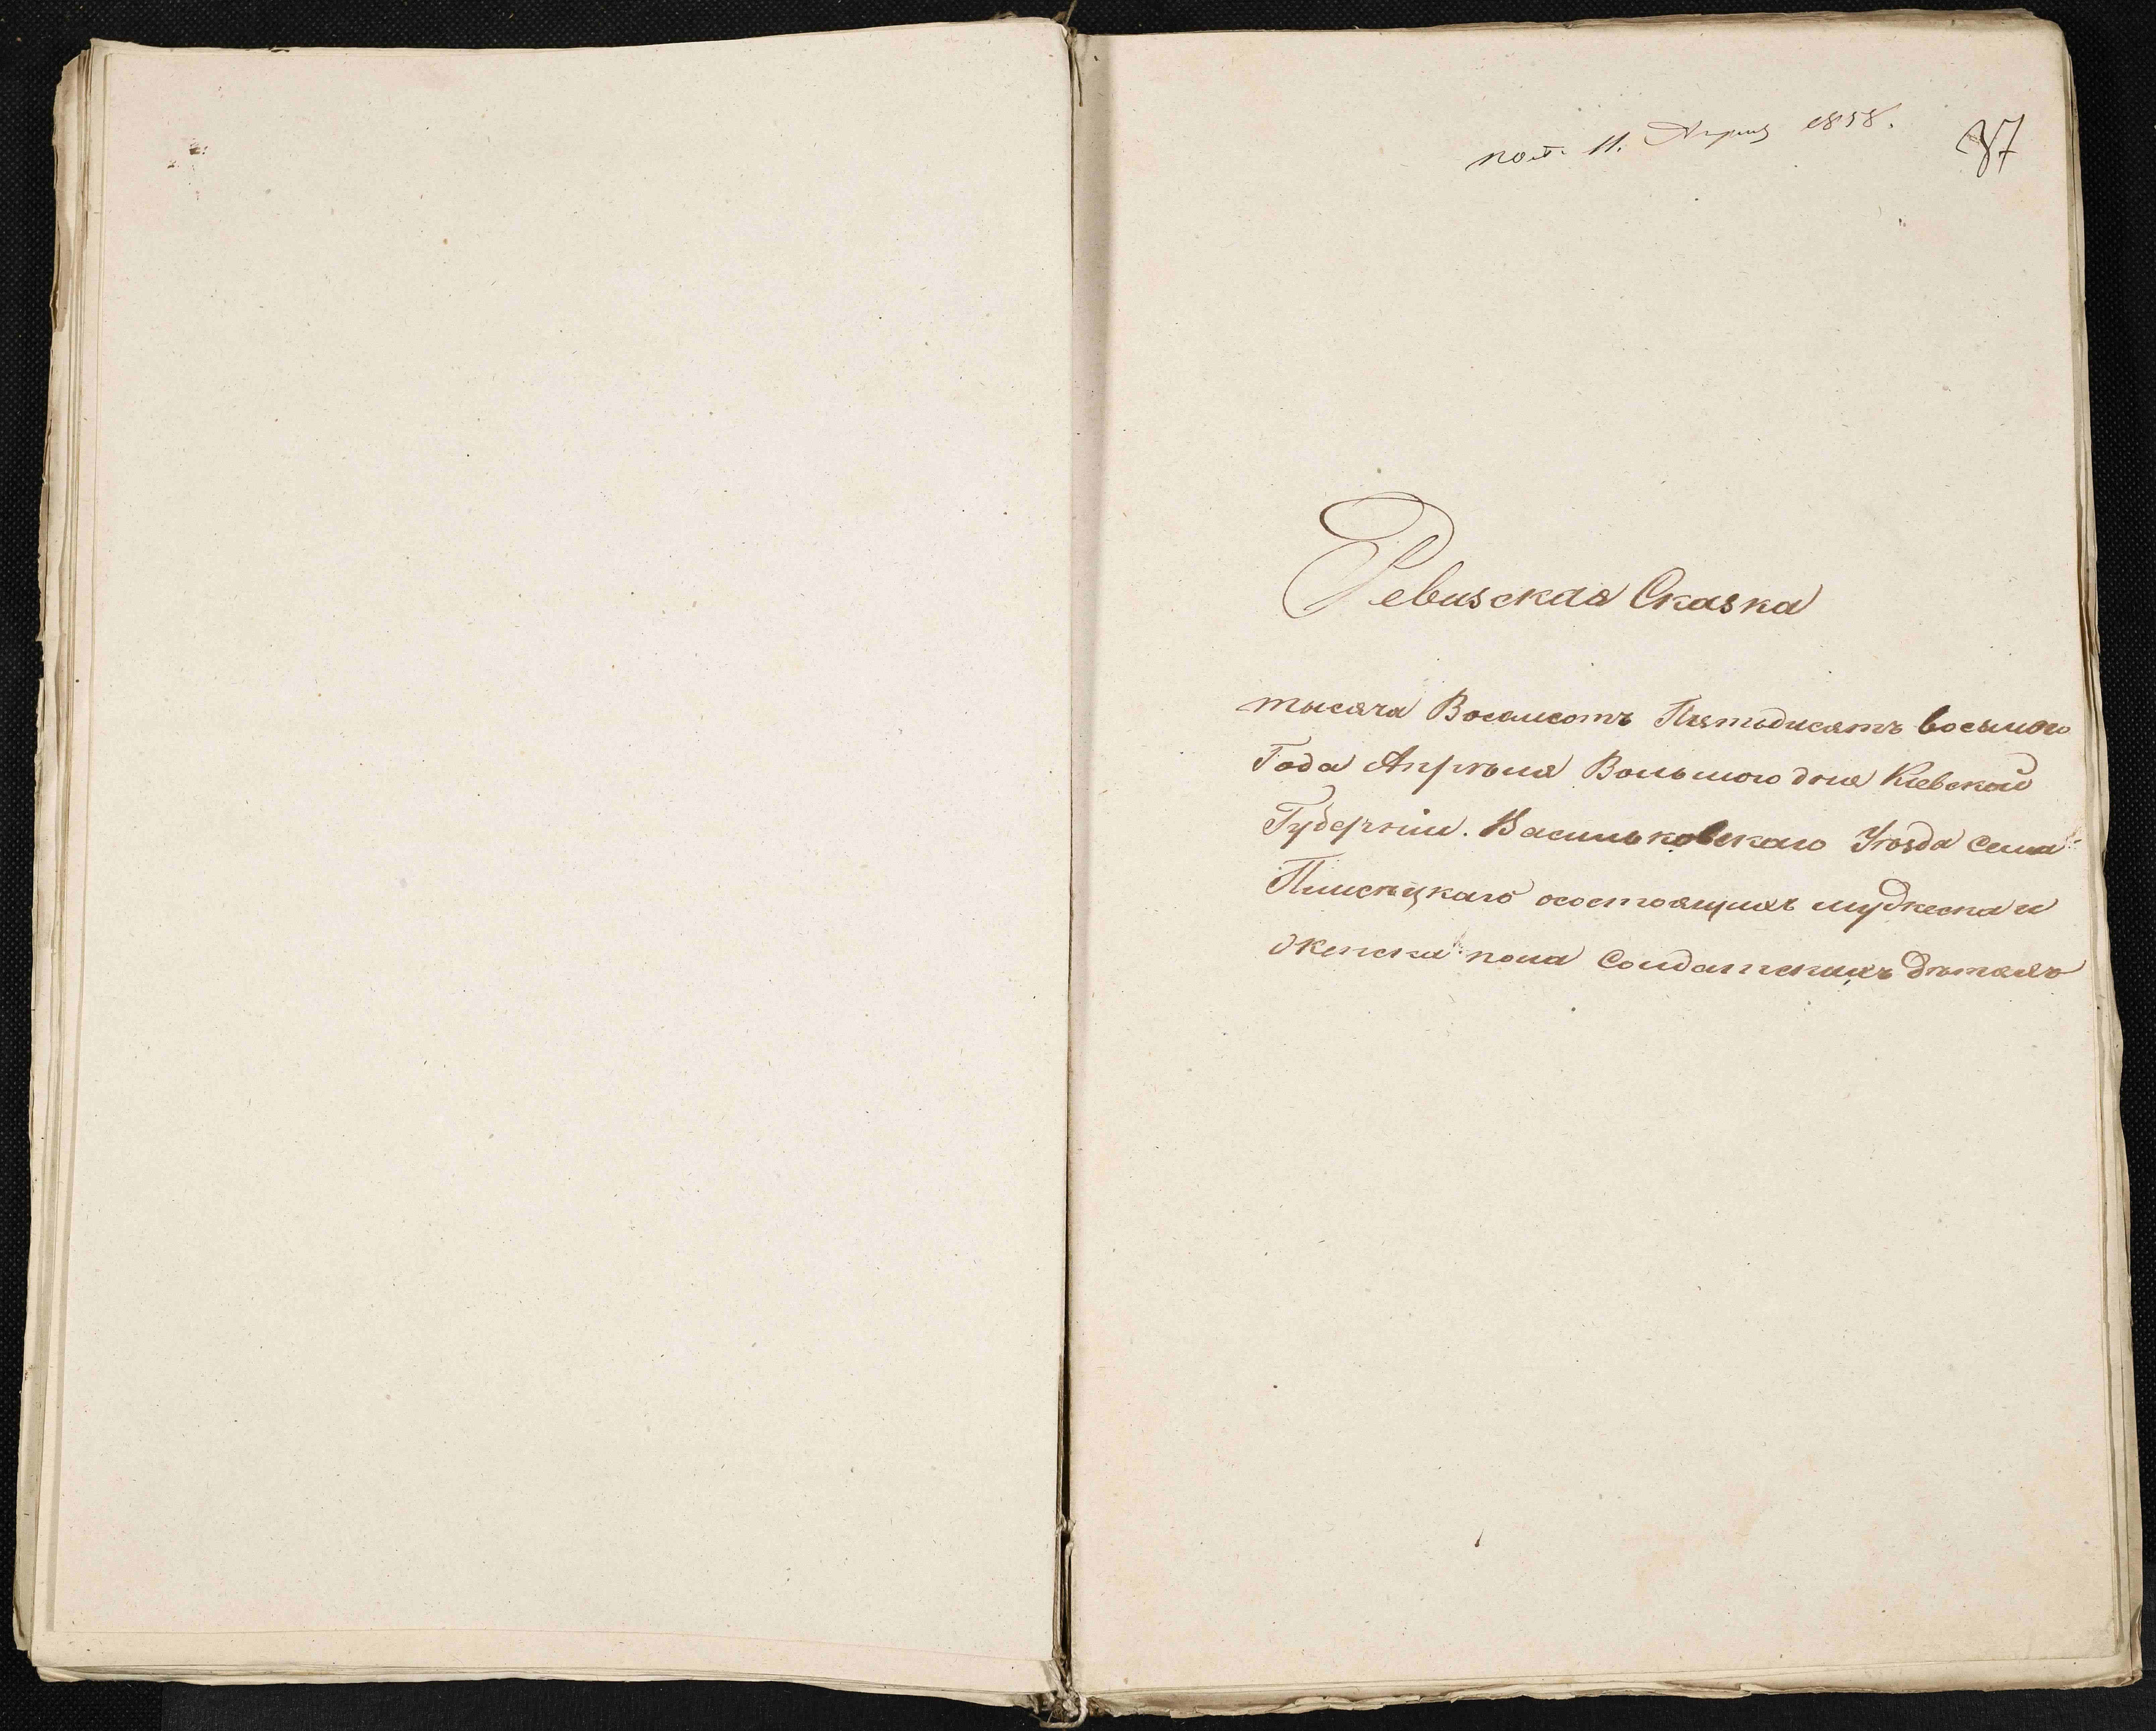 пол. 11. Апреля 1858.
37
Ревизская Сказка
тысяча Восемсотъ Пятьдисятъ восьмого
Года Апрѣля Восьмого дня Киевской
Губерніи. Васильковскаго Уѣзда села
Плисецкаго осостоящихъ мужеска и
женска пола Солдатскихъ дѣтяхъ